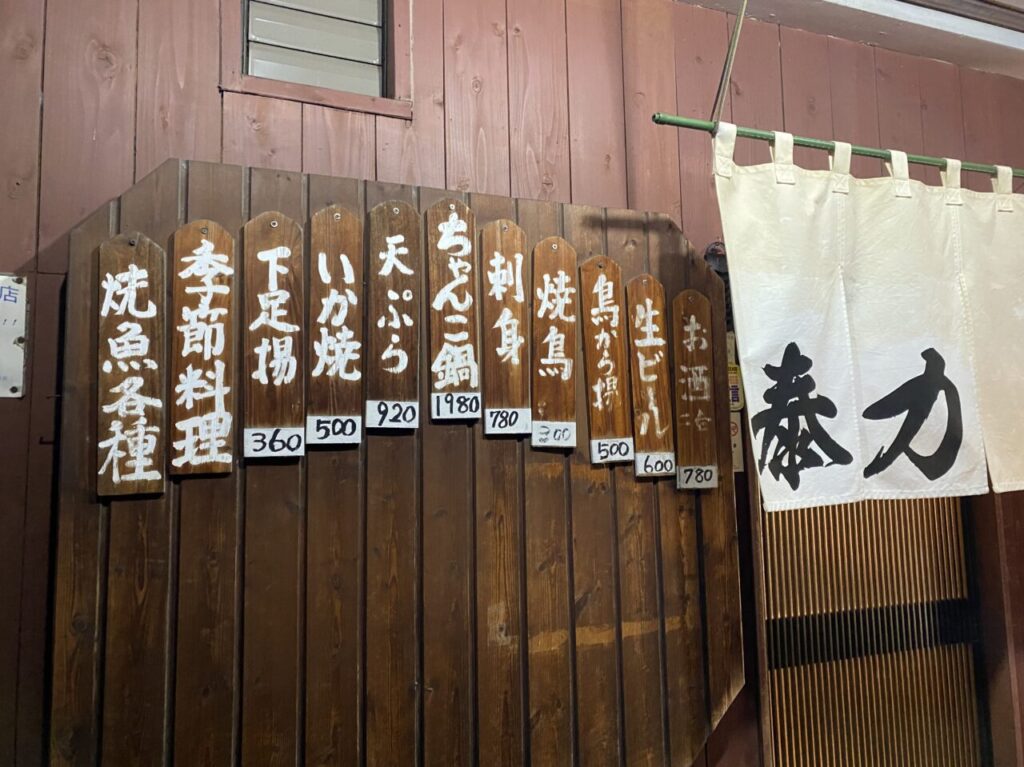 泰力
お酒
780
生ビール
600
鳥から揚
500
焼鳥
300
刺身
780
ちゃんこ鍋
1980
天ぷら
920
いか焼
500
下足揚
360
季節料理
焼魚各種
店
!!